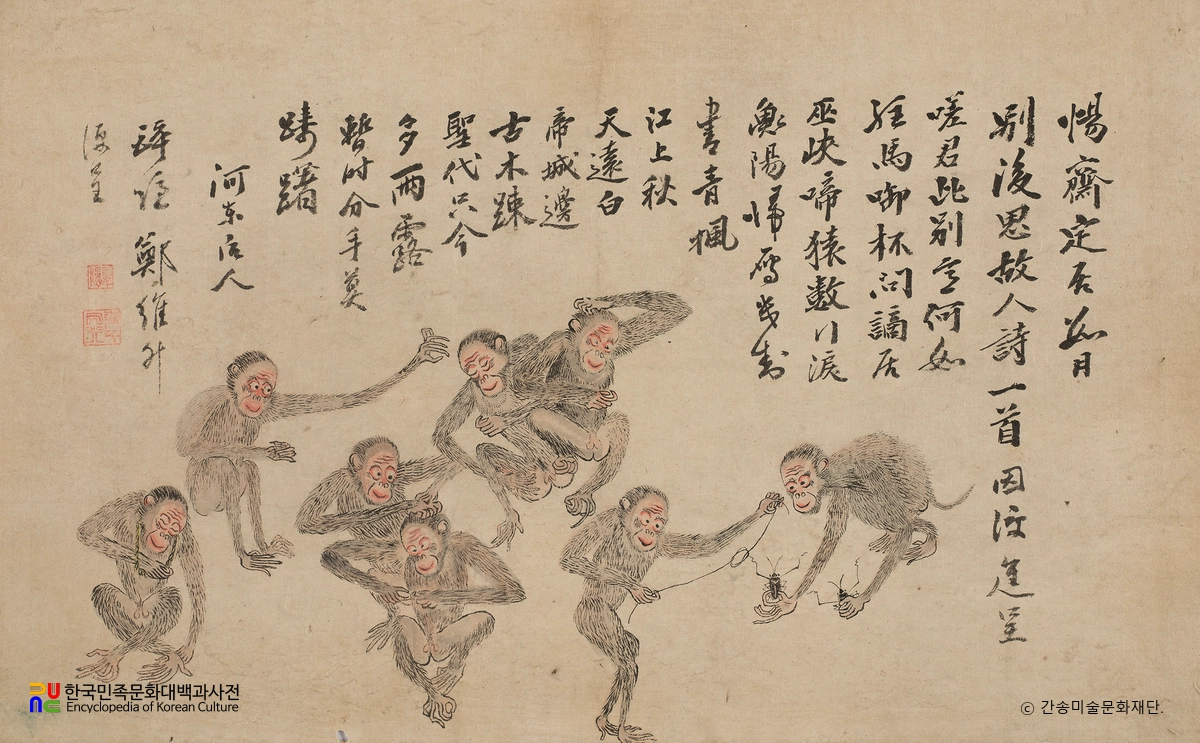 惕齋定居如月
別後思故人詩一首因進呈
嗟君此別意何如
駐馬啣杯問謫居
巫峽啼猿數行淚
衡陽帰雁幾封
書青楓
江上秋
天遠白
帝城邊
古木踈
聖代只今
多雨露
暫时分手莫
躊躇
河東后人
隱 鄭維升
呈
한국민족문화대백과사전
Encyclopedia of Korean Culture
ⓒ 간송미술문화재단.